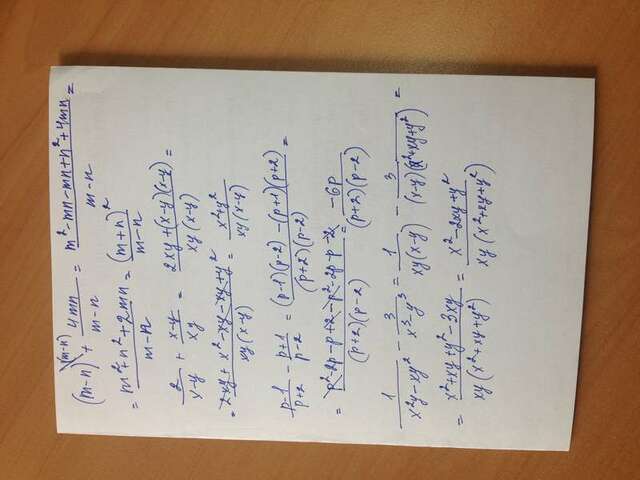 (m-n)^(m-n) + 4mn/(m-n) = (m²-mn-mn+n²+4mn)/(m-n) =
= (m²+n²+2mn)/(m-n) = (m+n)²/(m-n)
2/(x-y) + (x-y)/(xy) = (2xy+(x-y)(x-y))/(xy(x-y)) =
= (2xy+x²-xy-xy+y²)/(xy(x-y)) = (x²+y²)/(xy(x-y))
(p-1)/(p+2) - (p+1)/(p-2) = ((p-1)(p-2)-(p+1)(p+2))/((p+2)(p-2)) =
= (p²-2p-p+2-p²-2p-p-2)/((p+2)(p-2)) = -6p/((p+2)(p-2))
1/(x²y-xy²) - 3/(x³-y³) = 1/(xy(x-y)) - 3/((x-y)(x²+xy+y²)) =
= (x²+xy+y²-3xy)/(xy(x²+xy+y²)) = (x²-2xy+y²)/(xy(x²+xy+y²))